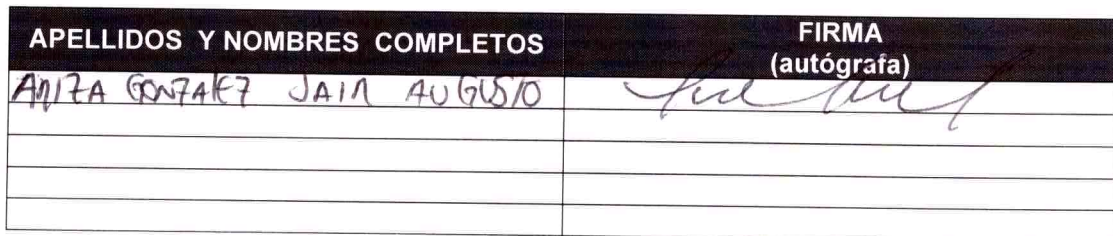 APELLIDOS Y NOMBRES COMPLETOS
FIRMA
(autógrafa)
ARIZA GONZALEZ JAIR AUGUSTO